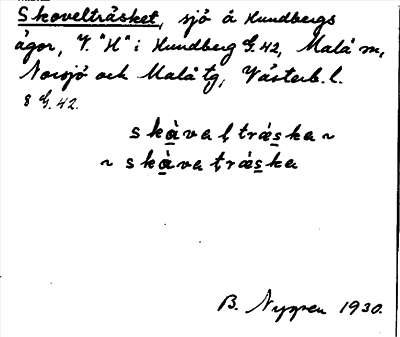 Skovelträsket, sjö å Hundbergs
ägor, V. "H" i Hundberg G. 42, Malå m,
Norsjö och Malå tg, Västerb. l.
8 G. 42.
skàvaḷträska ~
~ skàvaṭräska
B. Nygren 1930.